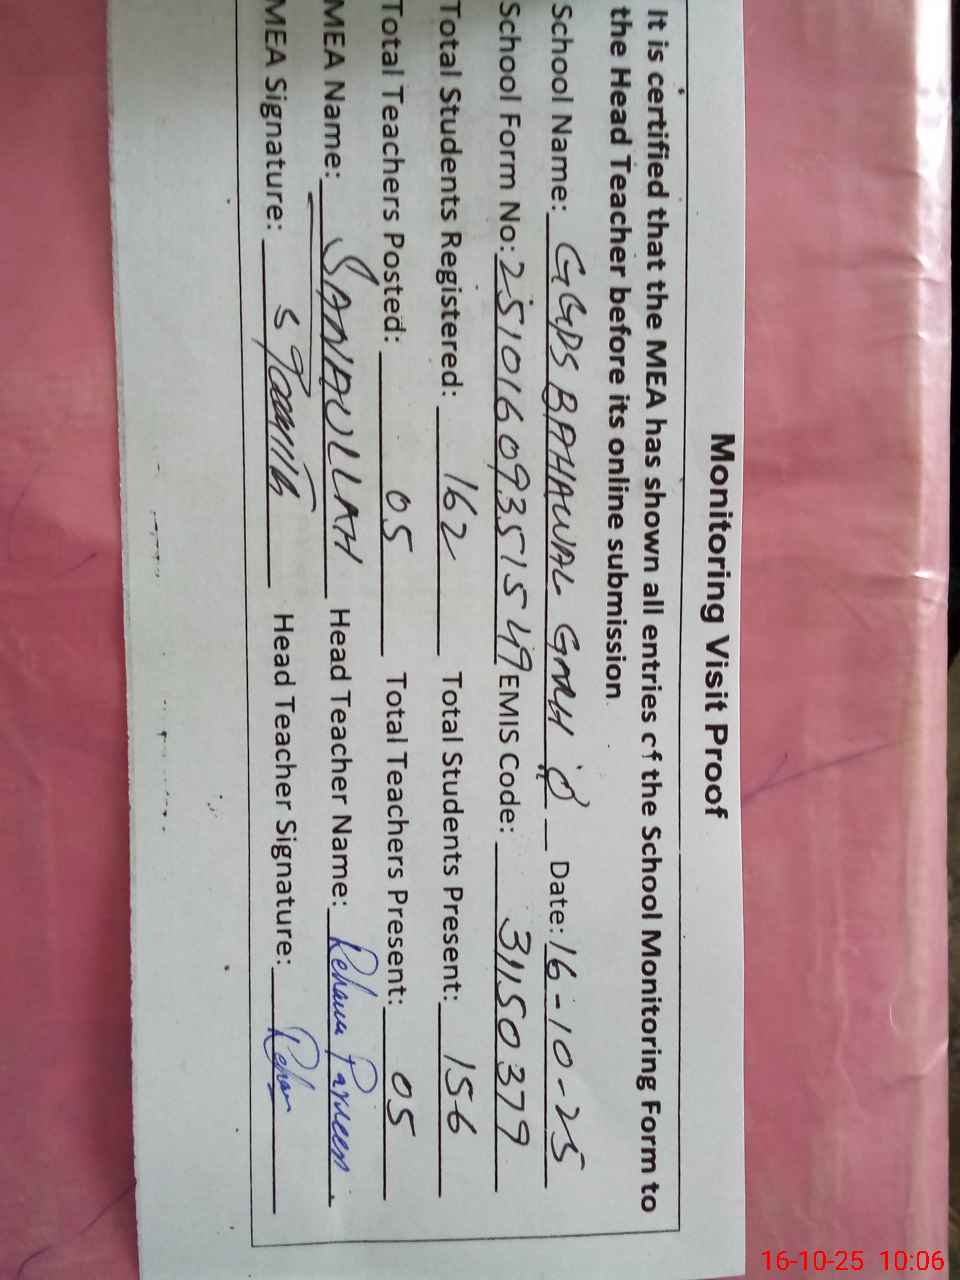 Monitoring Visit Proof
It is certified that the MEA has shown all entries of the School Monitoring Form to
the Head Teacher before its online submission.
School Name: GGPS BAHAWAL GARH Date: 16-10-25
School Form No: 251016093515549 EMIS Code: 31150379
Total Students Registered: 162 Total Students Present: 156
Total Teachers Posted: 05 Total Teachers Present: 05
MEA Name: SANAULLAH Head Teacher Name: Rehana Parveen
MEA Signature: Head Teacher Signature: Rehan
16-10-25 10:06